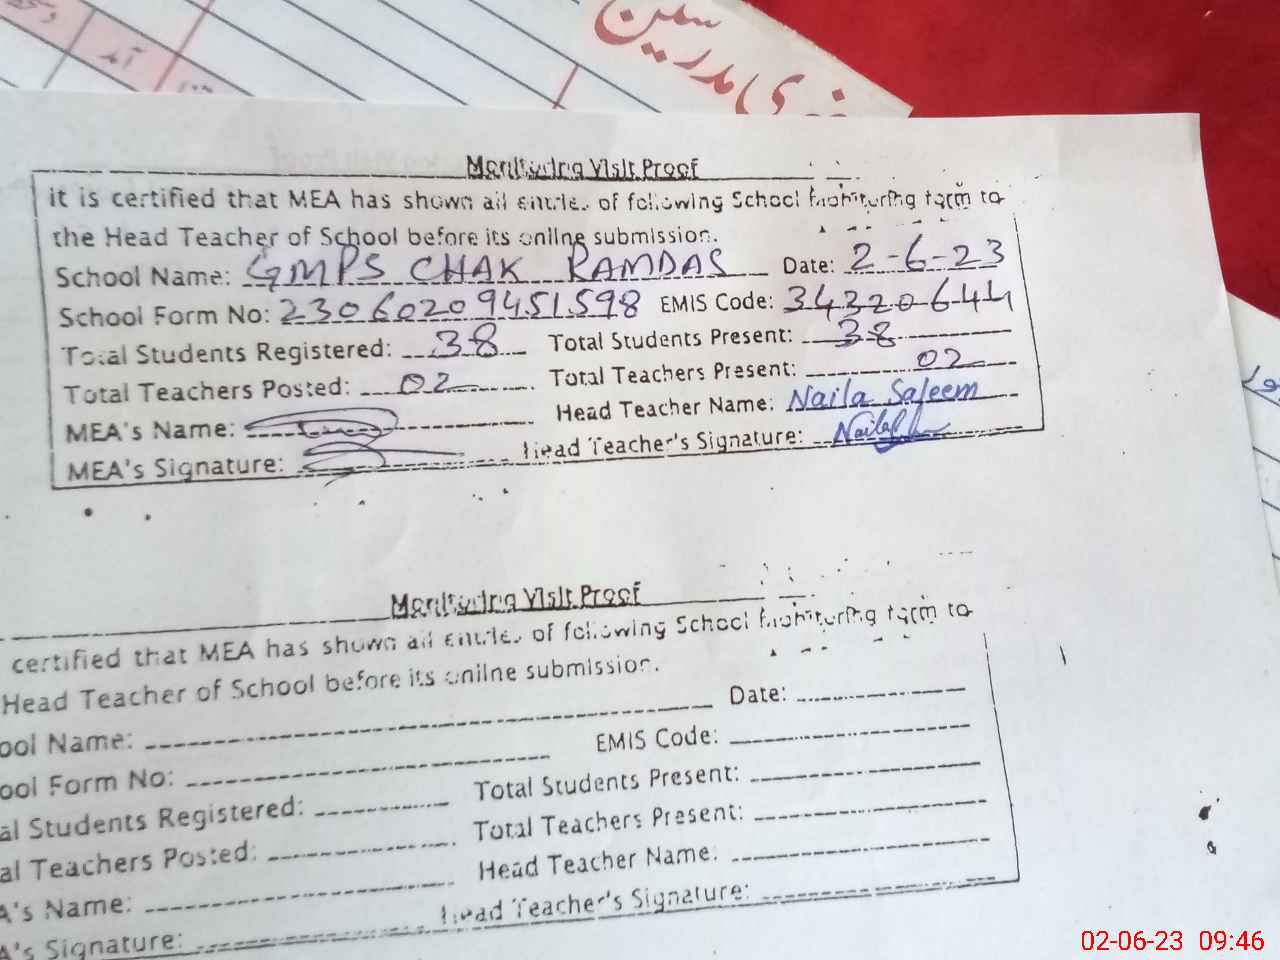 مدرسین
آمد
Monitoring Visit Proof
it is certified that MEA has shown all entries of following School Monitoring form to
the Head Teacher of School before its online submission.
School Name: GMPS CHAK RAMDAS Date: 2-6-23
School Form No: 23060209451598 EMIS Code: 34320644
Total Students Registered: 38 Total Students Present: 38
Total Teachers Posted: 02 Total Teachers Present: 02
MEA's Name: Head Teacher Name: Naila Saleem
MEA's Signature: Head Teacher's Signature: Naila
Monitoring Visit Proof
certified that MEA has shown all entries of following School Monitoring form to
Head Teacher of School before its online submission.
ool Name: Date:
ool Form No: EMIS Code:
al Students Registered: Total Students Present:
al Teachers Posted: Total Teachers Present:
A's Name: Head Teacher Name:
A's Signature: Head Teacher's Signature:
02-06-23 09:46